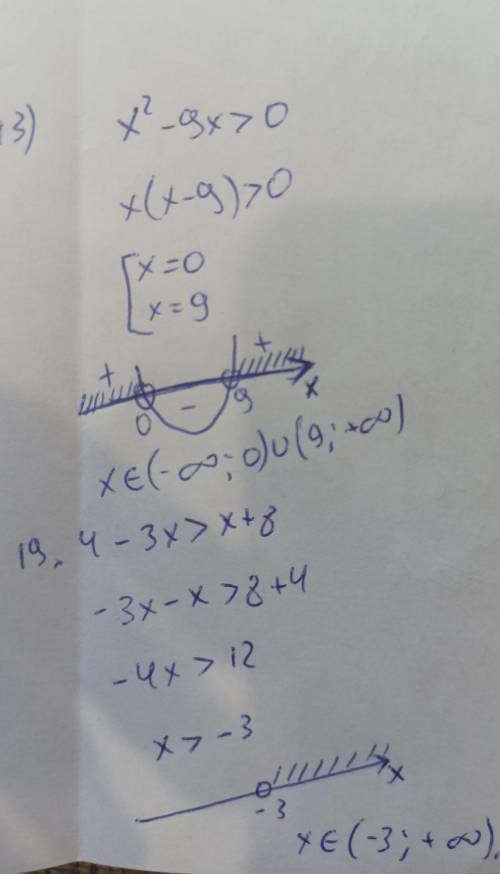 3) x² - 9x > 0
x(x-9) > 0
[x = 0
x = 9
+ - +
0 9 x
x ∈ (-∞; 0) ∪ (9; +∞)
19. 4 - 3x > x + 8
-3x - x > 8 + 4
-4x > 12
x > -3
-3 x
x ∈ (-3; +∞).